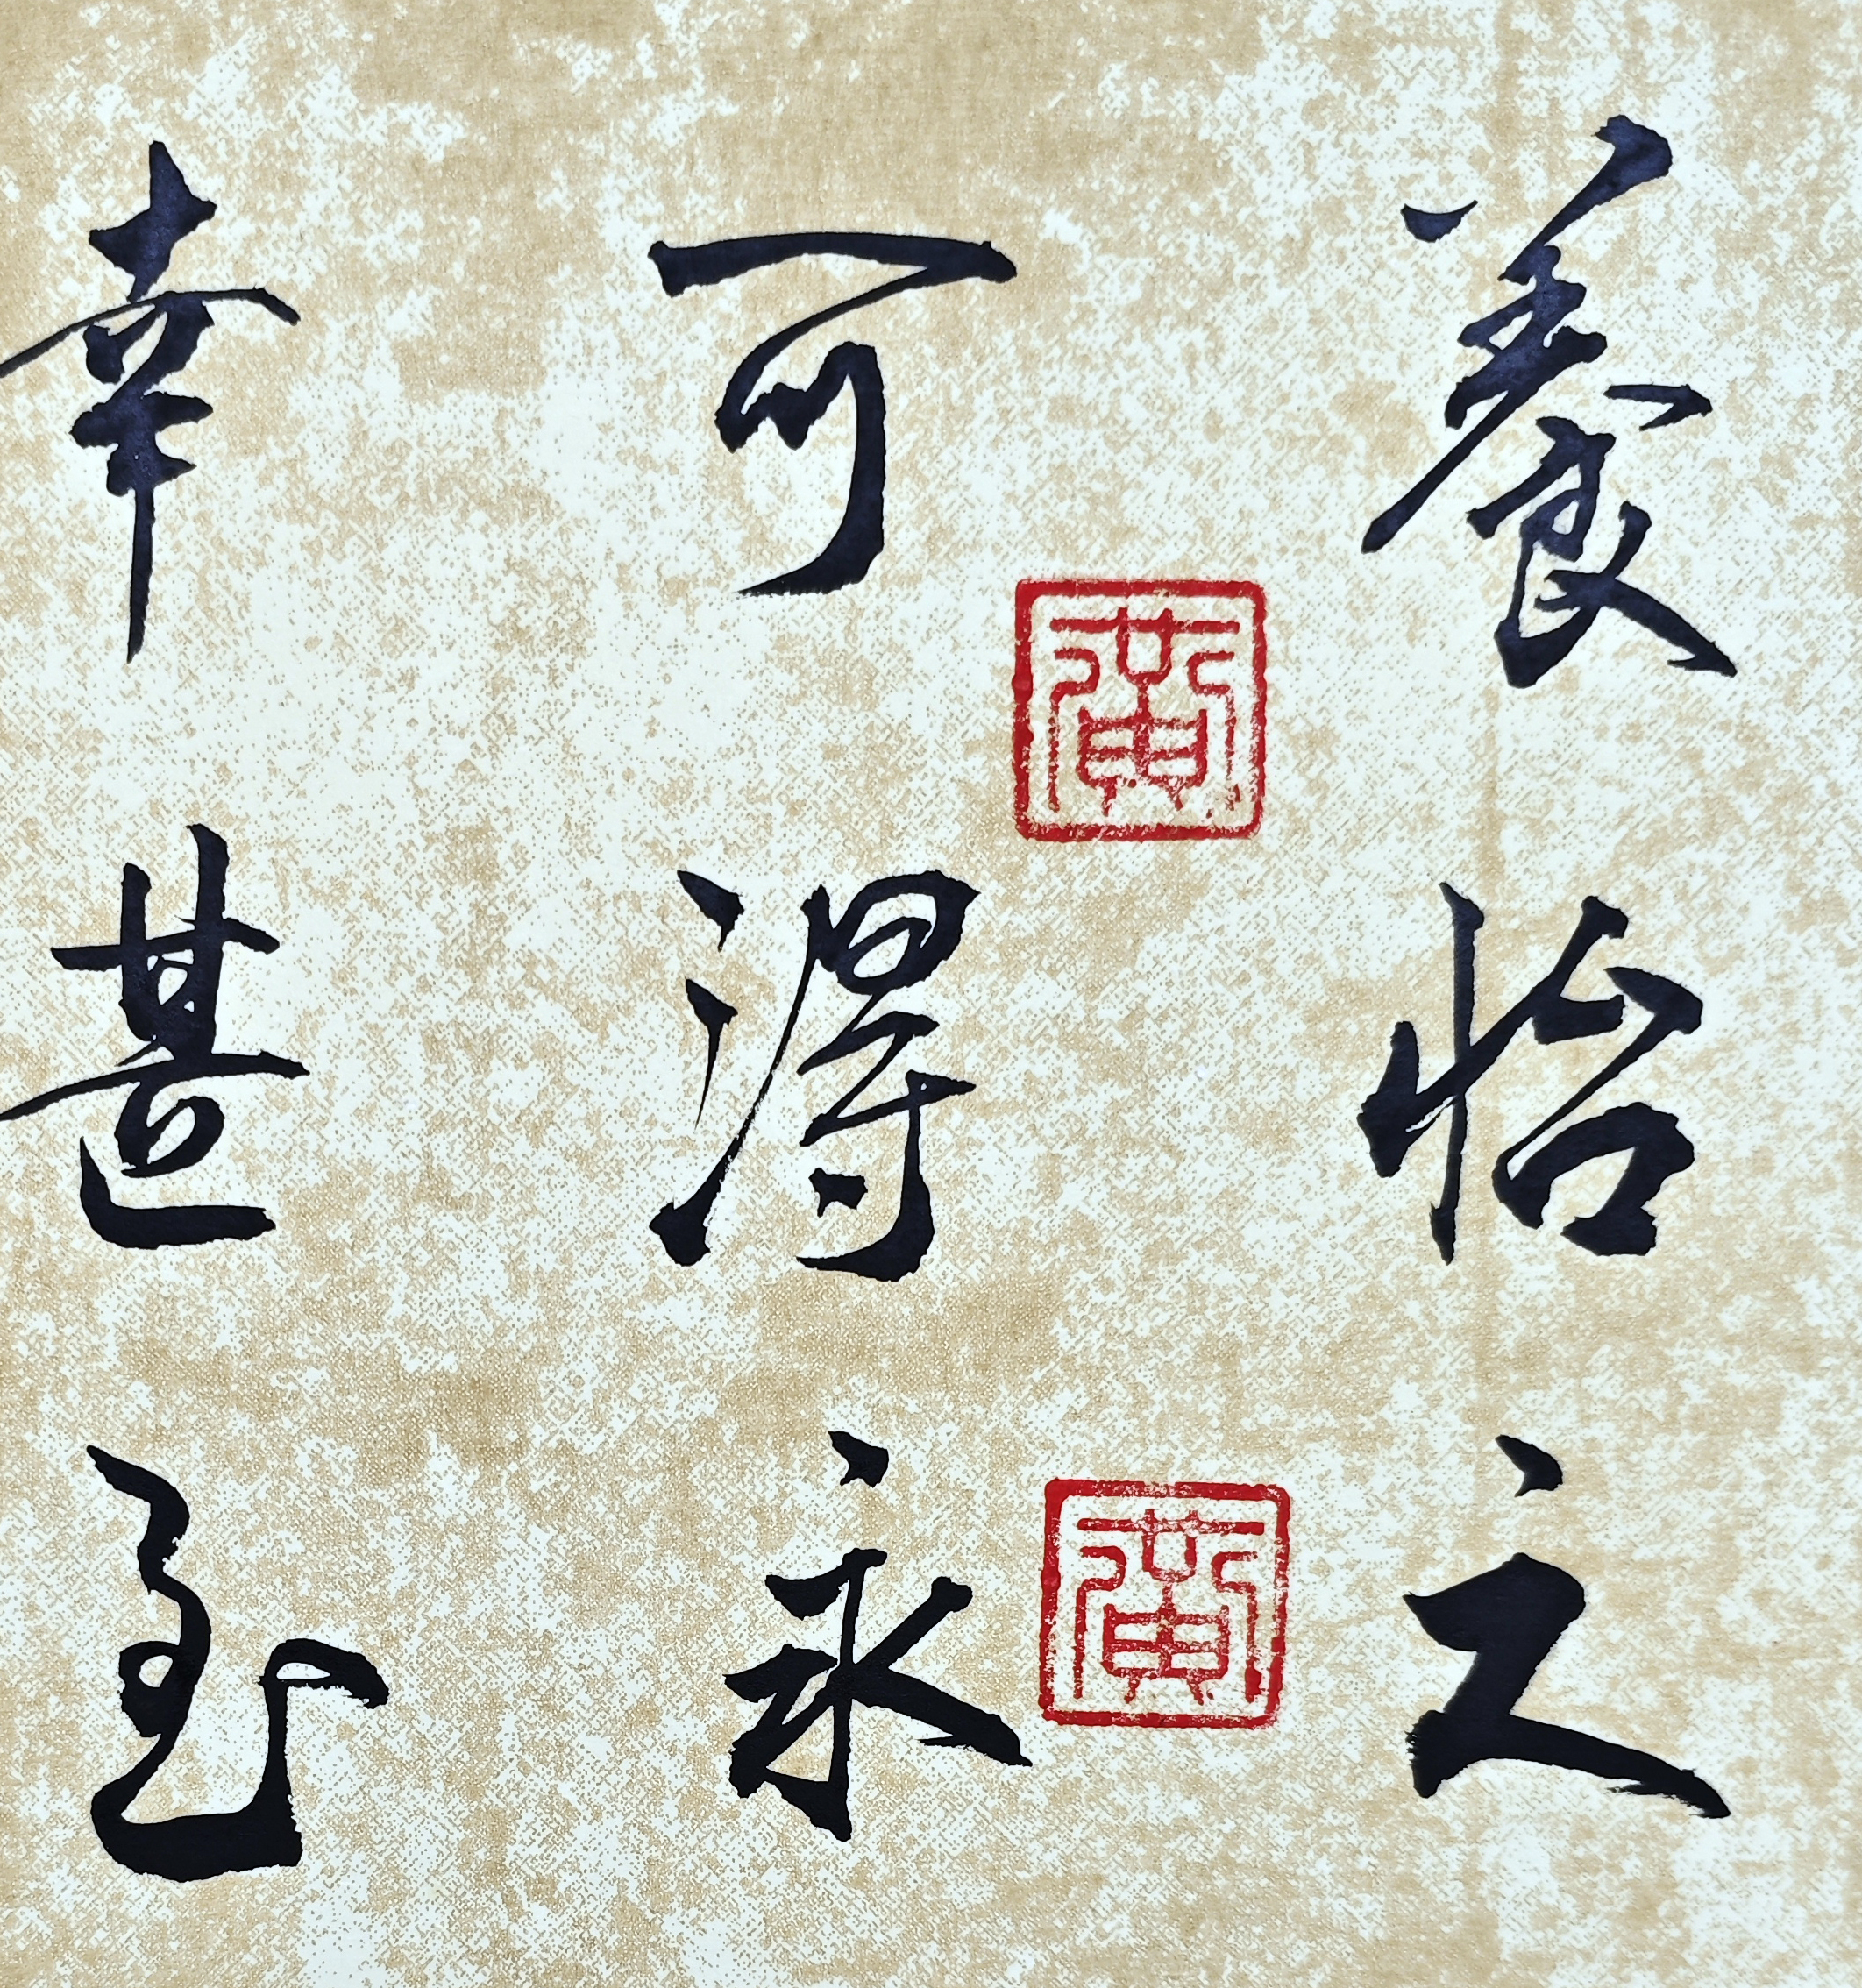 養怡之
可得永
幸甚至
黄
黄